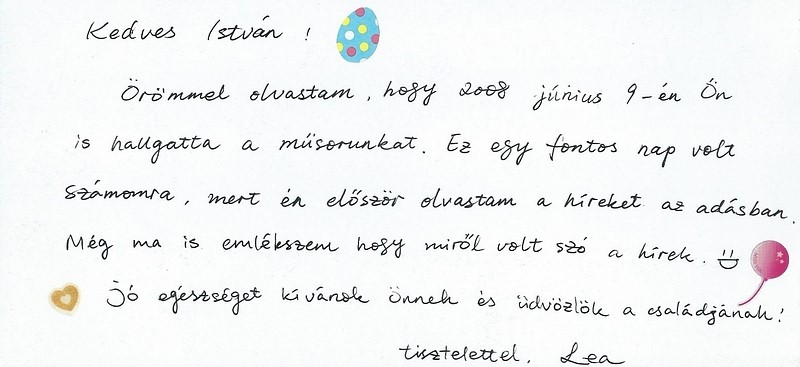 Kedves István !
Örömmel olvastam, hogy 2008 június 9-én Ön
is hallgatta a műsorunkat. Ez egy fontos nap volt
számomra, mert én először olvastam a híreket az adásban.
Még ma is emlékszem hogy miről volt szó a hírek.
Jó egészséget kívánok Önnek és üdvözlök a családjának!
tisztelettel. Lea